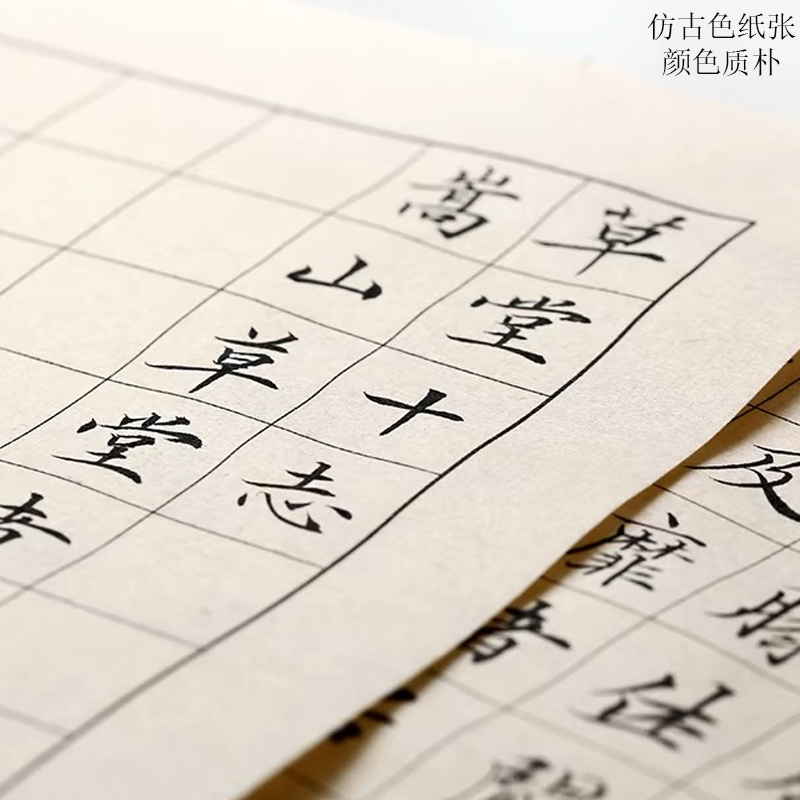 仿古色纸张
颜色质朴
草堂十志
嵩山草堂
及
靡
者
佳